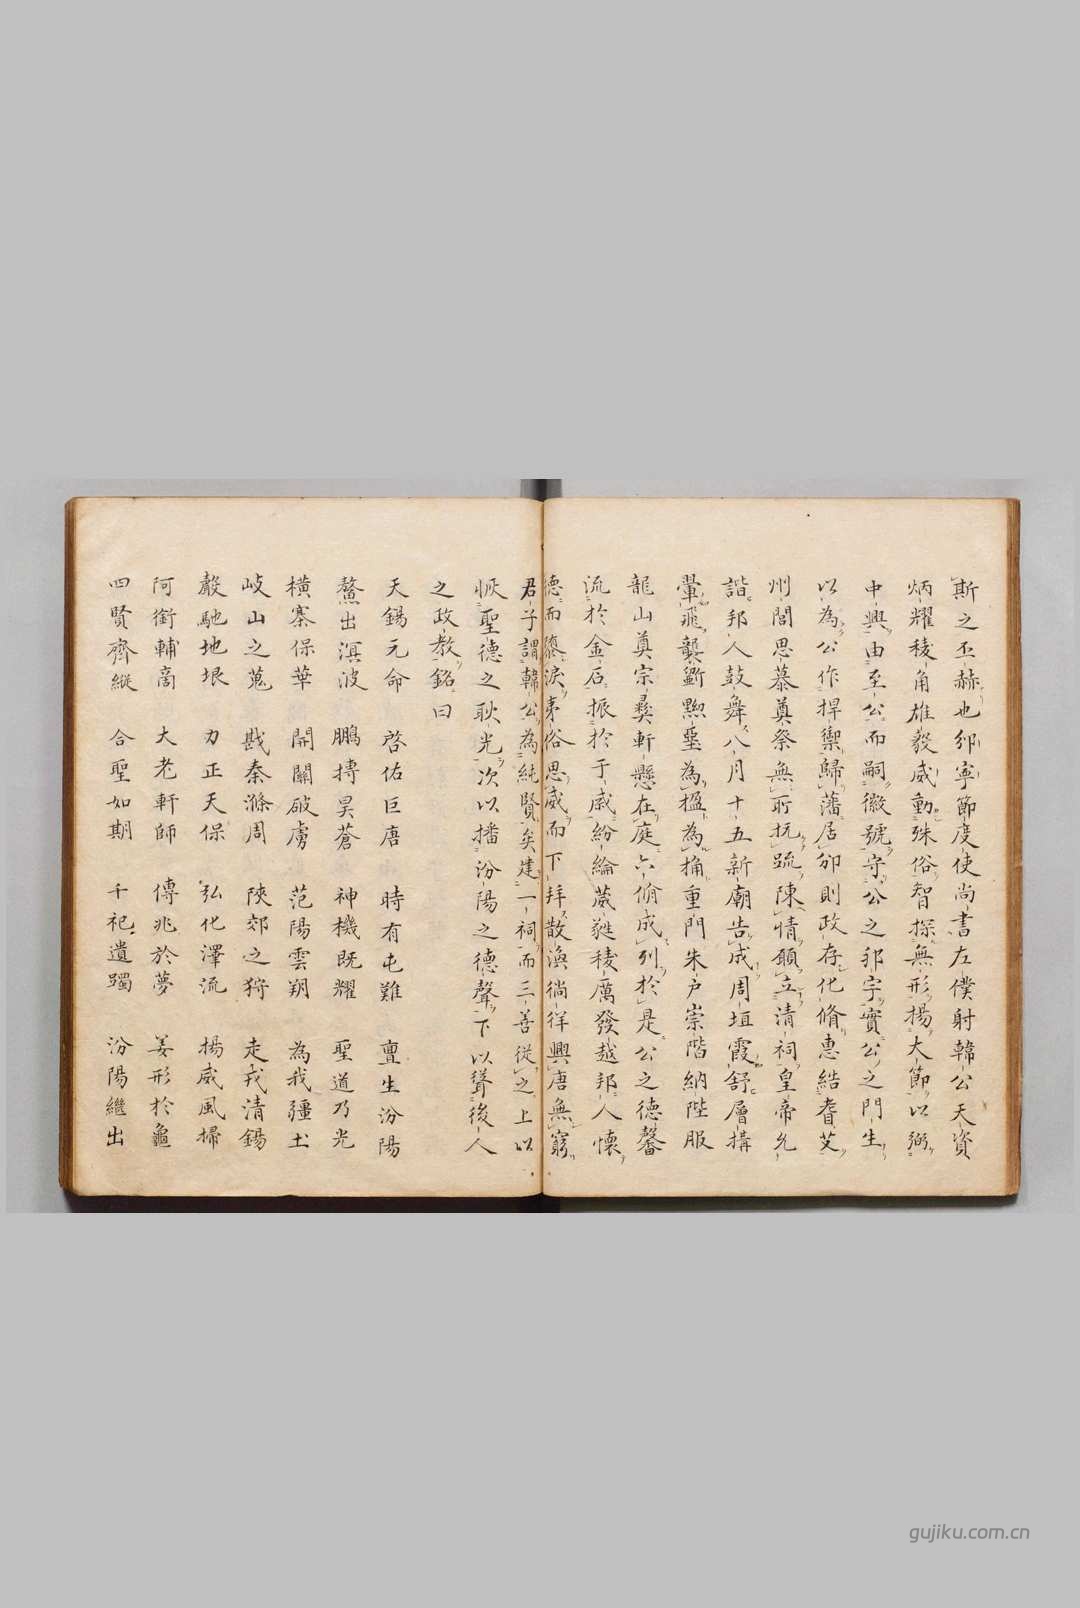 斯之丕赫也邠寧節度使尚書左僕射韓公天資
炳耀稜角雄毅威動殊俗智探無形揚大節以弼
中興由至公而嗣徽號守公之邦字實公之門生
以為公作捍禦歸藩居邠則政存化脩惠結耆艾
州閭思慕奠祭無所抗疏陳情願立清祠皇帝允
諧邦人鼓舞八月十五新廟告成周垣霞舒層搆
翬飛龔斲黝堊為楹為桷重門朱戶崇階納陛服
龍山奠宗彝軒懸在庭六佾成列於是公之德馨
流於金石振於于威紛綸葳蕤稜厲發越邦人懷
德而隳淚夷俗思威而下拜散渙徜徉興唐無窮
君子謂韓公為純賢矣建一祠而三善從之上以
恢聖德之耿光次以播汾陽之德聲下以聳後人
之政教銘曰
天錫元命 啓佑巨唐 時有屯難 亶生汾陽
鰲出溟波 鵬摶昊蒼 神機既耀 聖道乃光
橫寨保華 開關破虜 范陽雲朔 為我疆土
岐山之蒐 戡秦滌周 陝郊之狩 走戎清鍚
嚴馳地垠 力正天保 弘化澤流 揚威風掃
阿衡輔商 大老軒師 傳兆於夢 姜形於龜
四賢齊縱 合聖如期 千祀遺躅 汾陽繼出
gujiku.com.cn